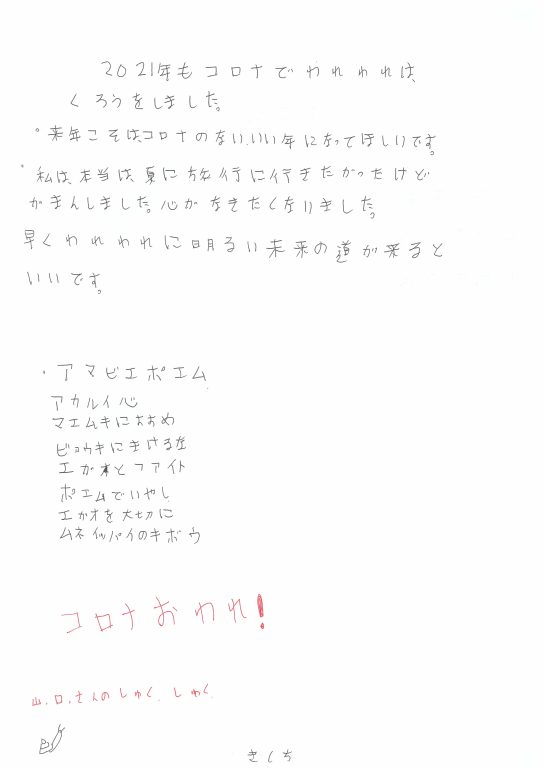 2021年もコロナでわれわれは、
くろうをしました。
・来年こそはコロナのない、いい年になってほしいです。
・私は、本当は夏に旅行に行きたかったけど
がまんしました。心がなきたくなりました。
早くわれわれに明るい未来の道が来ると
いいです。
・アマビエポエム
アカルイ心
マエムキにすすめ
ビョウキにまけるな
エがオとファイト
ポエムでいやし
エがオを大切に
ムネイッパイのキボウ
コロナおわれ!
山.口.さんのしゅく.しゅく.
きくち